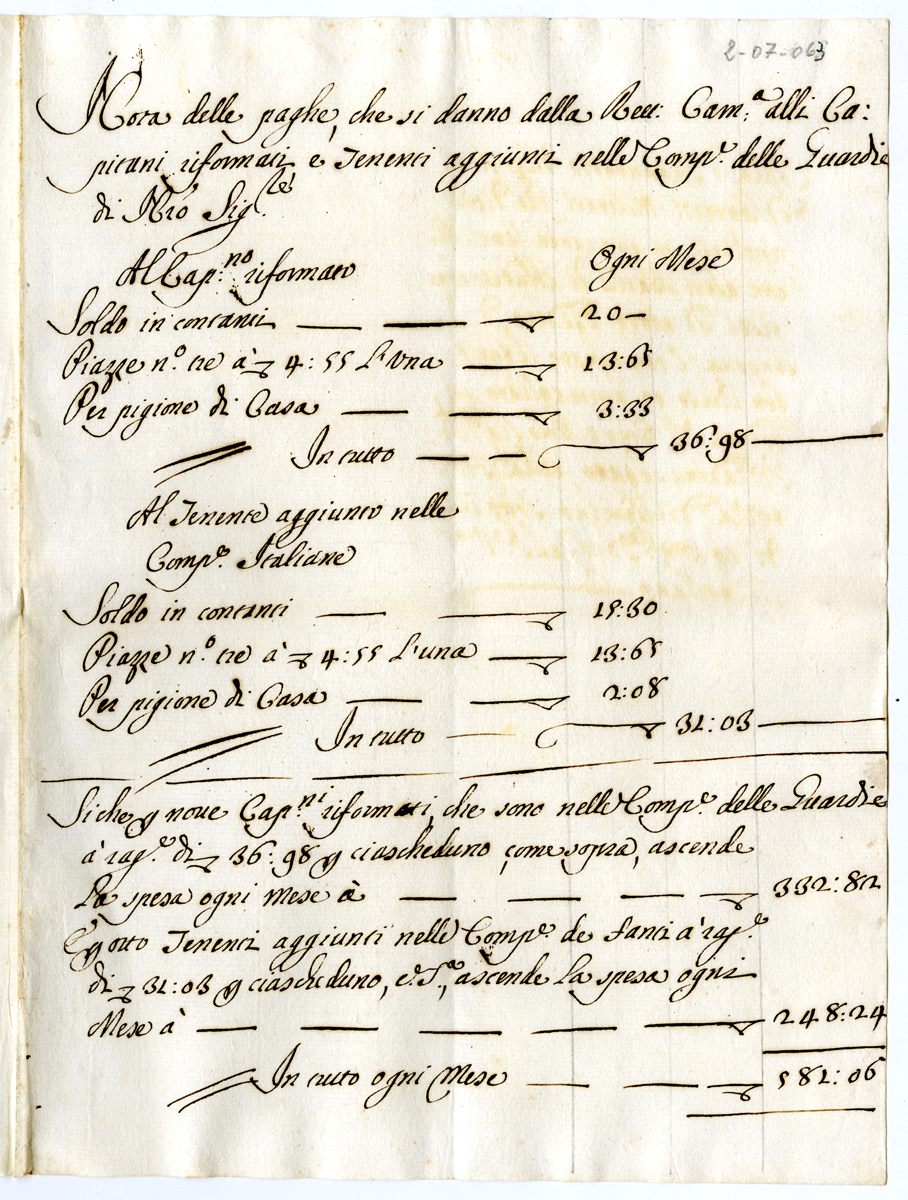 2-07-063
Nota delle paghe, che si danno dalla Reu: Cam:ª alli Ca:
pitani riformati e Tenenti aggiunti nelle Comp.e delle Guardie
di N'ro Sig.le
Al Cap:no riformato Ogni Mese
Soldo in contanti — — — 20 —
Piazze n.º tre à 4:55 L'Una — 13:65
Per pigione di Casa — — 3:33
In tutto — — 36:98 —
Al Tenente aggiunto nelle
Comp.e Italiane
Soldo in contanti — — 15:30
Piazze n.º tre à 4:55 L'una — 13:65
Per pigione di Casa — — 2:08
In tutto — 31:03 —
Siche p nove Cap.ni riformati, che sono nelle Comp.e delle Guardie
à rag.e di 36:98 p ciascheduno, come sopra, ascende
La spesa ogni Mese à — — — — 332:82
E p otto Tenenti aggiunti nelle Comp.e de fanti à rag.e
di 31:03 p ciascheduno, c.e s.ª, ascende La spesa ogni
Mese à — — — — — 248:24
In tutto ogni Mese — — — 581:06